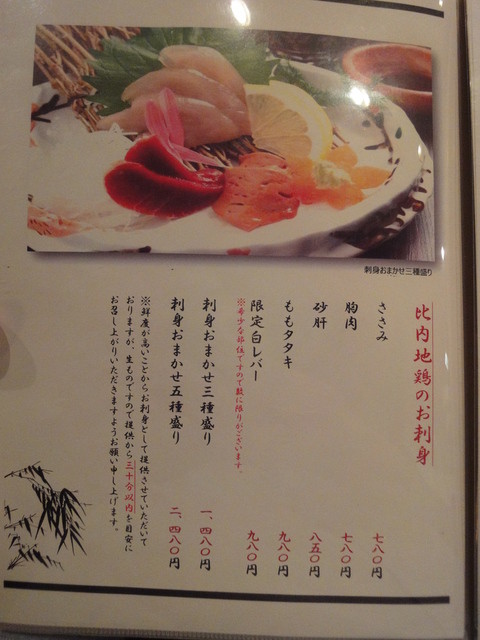 刺身おまかせ三種盛り
比内地鶏のお刺身
ささみ 七八〇円
胸肉 七八〇円
砂肝 八五〇円
ももタタキ 九八〇円
限定白レバー 九八〇円
※希少な部位ですので数に限りがございます。
刺身おまかせ三種盛り 一、四八〇円
刺身おまかせ五種盛り 二、四八〇円
※鮮度が高いことからお刺身として提供させていただいて
おりますが、生ものですので提供から三十分以内を目安に
お召し上がりいただきますようお願い申し上げます。